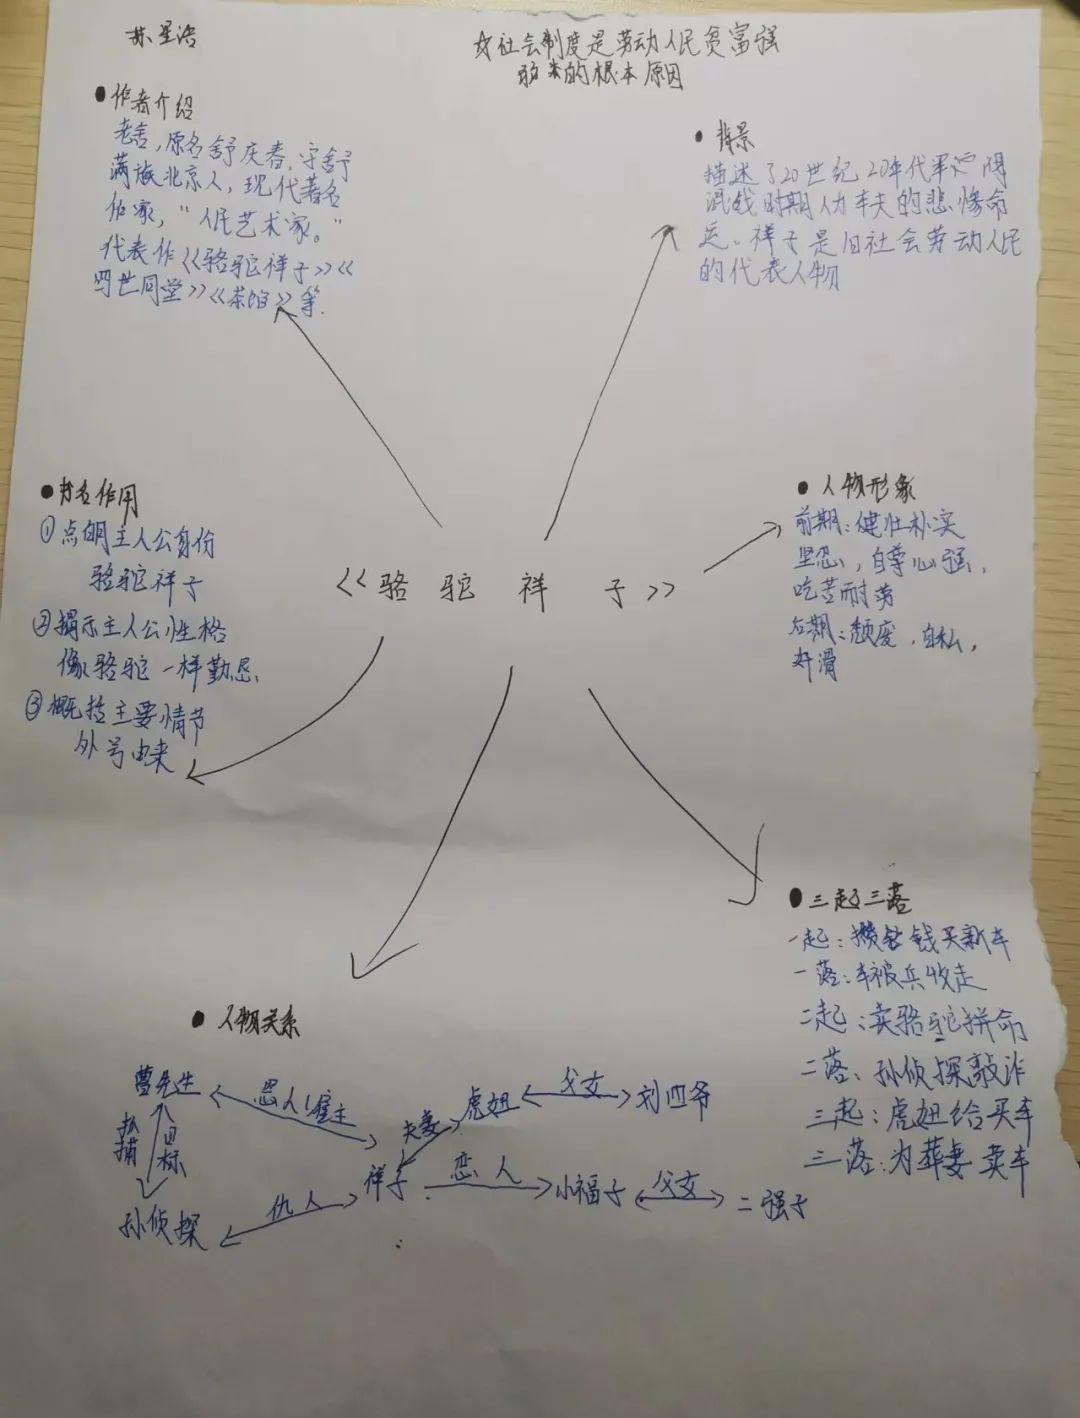 苏星浩
☆社会制度是劳动人民贫富强
弱来的根本原因
●作者介绍
老舍,原名舒庆春,字舒
满族北京人,现代著名
作家,"人民艺术家。"
代表作《骆驼祥子》《
四世同堂》《茶馆》等.
●背景
描述了20世纪20年代军
混战时期人力车夫的悲惨命
运。祥子是旧社会劳动人民
的代表人物
●书名作用
①点明主人公身份
骆驼祥子
②揭示主人公性格
像骆驼一样勤恳
③概括主要情节
外号由来
《骆驼祥子》
●人物形象
前期:健壮朴实
坚忍,自尊心强,
吃苦耐劳
后期:颓废,自私,
奸滑
●三起三落
一起:攒钱买新车
一落:车被兵收走
二起:卖骆驼拼命
二落:孙侦探敲诈
三起:虎妞给买车
三落:为葬妻卖车
●人物关系
曹先生 恩人/雇主
夫妻 虎妞 父女 刘四爷
抓捕 目标
祥子 恋人 小福子 父女 二强子
孙侦探 仇人